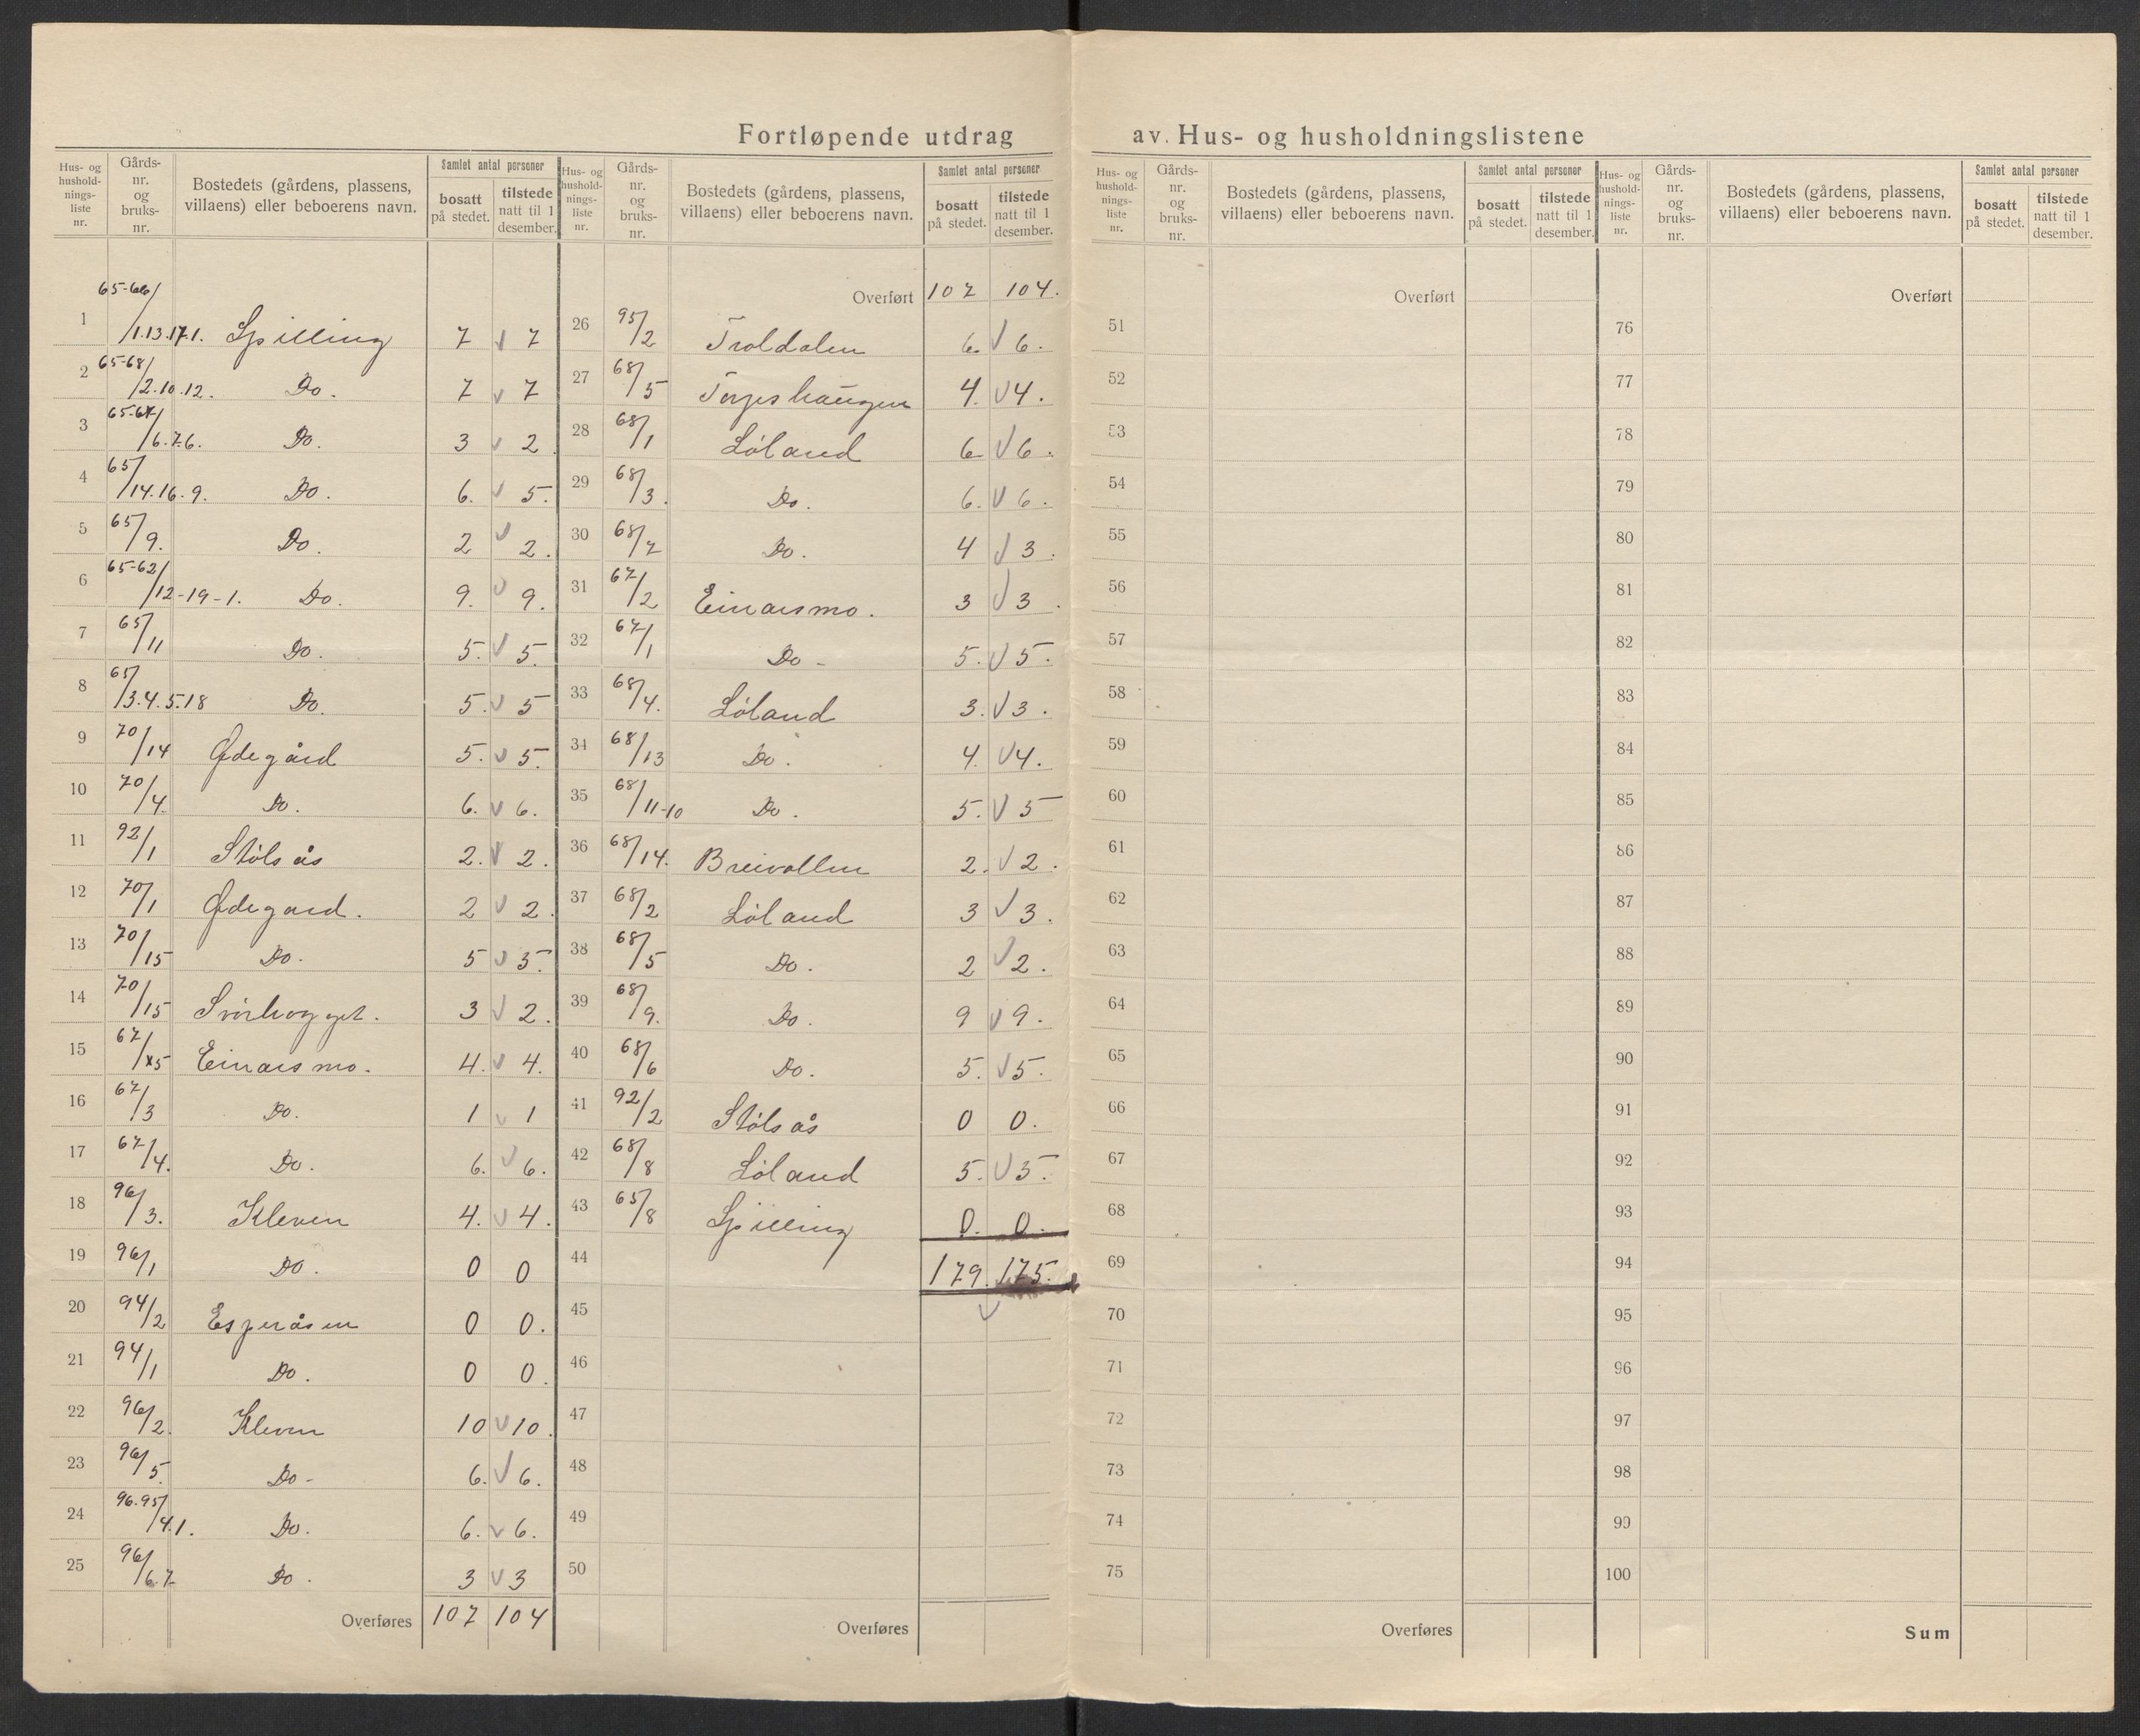 Fortløpende utdrag av Hus- og husholdningslistene
Hus- og hushold-nings-liste nr. Gårds-nr. og bruks-nr. Bostedets (gårdens, plassens, villaens) eller beboerens navn. Samlet antal personer bosatt på stedet. tilstede natt til 1 desember.
1 65-66/1.13.17.1. Spilling 7 v 7
2 65-68/2.10.12. Do. 7 v 7
3 65-67/6.7.6. Do. 3 v 2
4 65/14.16.9. Do. 6. v 5.
5 65/9. Do. 2 v 2.
6 65-62/12-19-1. Do. 9. v 9.
7 65/11 Do. 5. v 5.
8 65/3.4.5.18 Do. 5. v 5
9 70/14 Ødegård 5. v 5.
10 70/4. Do. 6. v 6.
11 92/1 Stølsås 2. v 2.
12 70/1 Ødegard. 2 v 2.
13 70/15 Do. 5 v 5.
14 70/15 3 v 2.
15 67/x5 Einarsmo. 4. v 4.
16 67/3 Do. 1 v 1
17 67/4. Do. 6. v 6.
18 96/3. Kleven 4. v 4.
19 96/1 Do. 0 0
20 94/2 Esperåsen 0 0.
21 94/1 Do. 0 0.
22 96/2. Kleven 10 v 10.
23 96/5. Do- 6. v 6.
24 96.95/4.1. Do. 6. v 6.
25 96/6.7 Do. 3 v 3
Overføres 107 104
Hus- og hushold-nings-liste nr. Gårds-nr. og bruks-nr. Bostedets (gårdens, plassens, villaens) eller beboerens navn. Samlet antal personer bosatt på stedet. tilstede natt til 1 desember.
Overført 107 104.
26 95/2 Troldalen 6. v 6.
27 68/5 Torjeshaugen 4. v 4.
28 68/1 Løland 6 v 6.
29 68/3. Do. 6. v 6.
30 68/7 Do. 4 v 3.
31 67/2 Einarsmo. 3 v 3.
32 67/1 Do- 5. v 5.
33 68/4. Løland 3. v 3.
34 68/13 Do. 4. v 4.
35 68/11-10 Do. 5. v 5
36 68/14. Breivollen 2. v 2.
37 68/2 Løland 3 v 3.
38 68/5 Do. 2 v 2.
39 68/9. Do. 9 v 9.
40 68/6 Do. 5. v 5.
41 92/2 Stølsås 0 0.
42 68/8 Løland 5. v 5.
43 65/8 Spilling 0. 0.
44 179. 175.
45 v
46
47
48
49
50
Overføres
Hus- og hushold-nings-liste nr. Gårds-nr. og bruks-nr. Bostedets (gårdens, plassens, villaens) eller beboerens navn. Samlet antal personer bosatt på stedet. tilstede natt til 1 desember.
Overført
51
52
53
54
55
56
57
58
59
60
61
62
63
64
65
66
67
68
69
70
71
72
73
74
75
Overføres
Hus- og hushold-nings-liste nr. Gårds-nr. og bruks-nr. Bostedets (gårdens, plassens, villaens) eller beboerens navn. Samlet antal personer bosatt på stedet. tilstede natt til 1 desember.
Overført
76
77
78
79
80
81
82
83
84
85
86
87
88
89
90
91
92
93
94
95
96
97
98
99
100
Sum